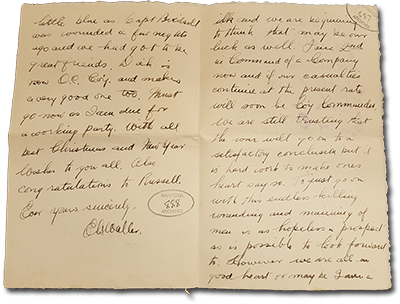 little blue as Capt Bicknell
was wounded a few nights
ago and we had got to be
great friends. Dick is
now O.C. Coy. and makes
a very good one too. Must
go now as I am due for
a working party. With all
best Christmas and New Year
wishes to you all. Also
congratulations to Russell.
Ever yours sincerely.
MANITOBA
888
ARCHIVES
idle and we are beginning
to think that may be our
luck as well. I am 2nd
in Command of a Company
now and if our casualties
continue at the present rate
will soon be Coy Commander.
We are still trusting that
the war will go on to a
satisfactory conclusion but it
is hard work to make ones
heart say so. To just go on
with this endless killing
wounding and maiming of
men is as hopeless a prospect
as is possible to look forward
to. However we are all in
good heart or maybe I have a
888